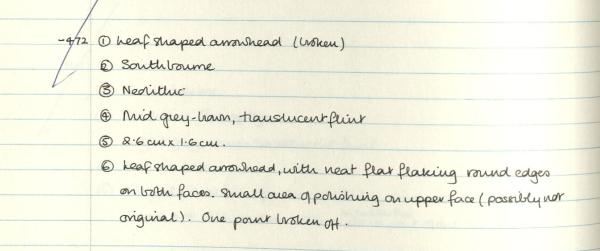 -472 ① Leaf shaped arrowhead (broken)
② Southbourne
③ Neolithic
④ Mid grey-brown, translucent flint
⑤ 2.6cm x 1.6cm.
⑥ Leaf shaped arrowhead, with neat flat flaking round edges
on both faces. Small area of polishing on upper face (possibly not
original). One point broken off.